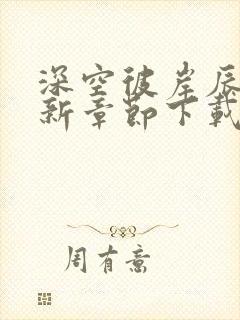 深空彼岸辰
新章节下载
周有意